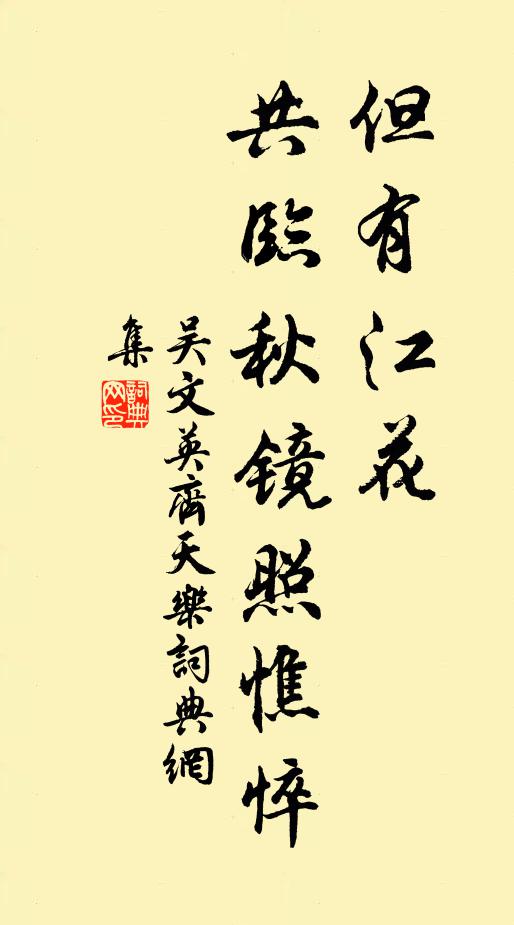 但有江花
共臨秋镜照憔悴
吴文英齊天樂詞典網
集
詞典網印